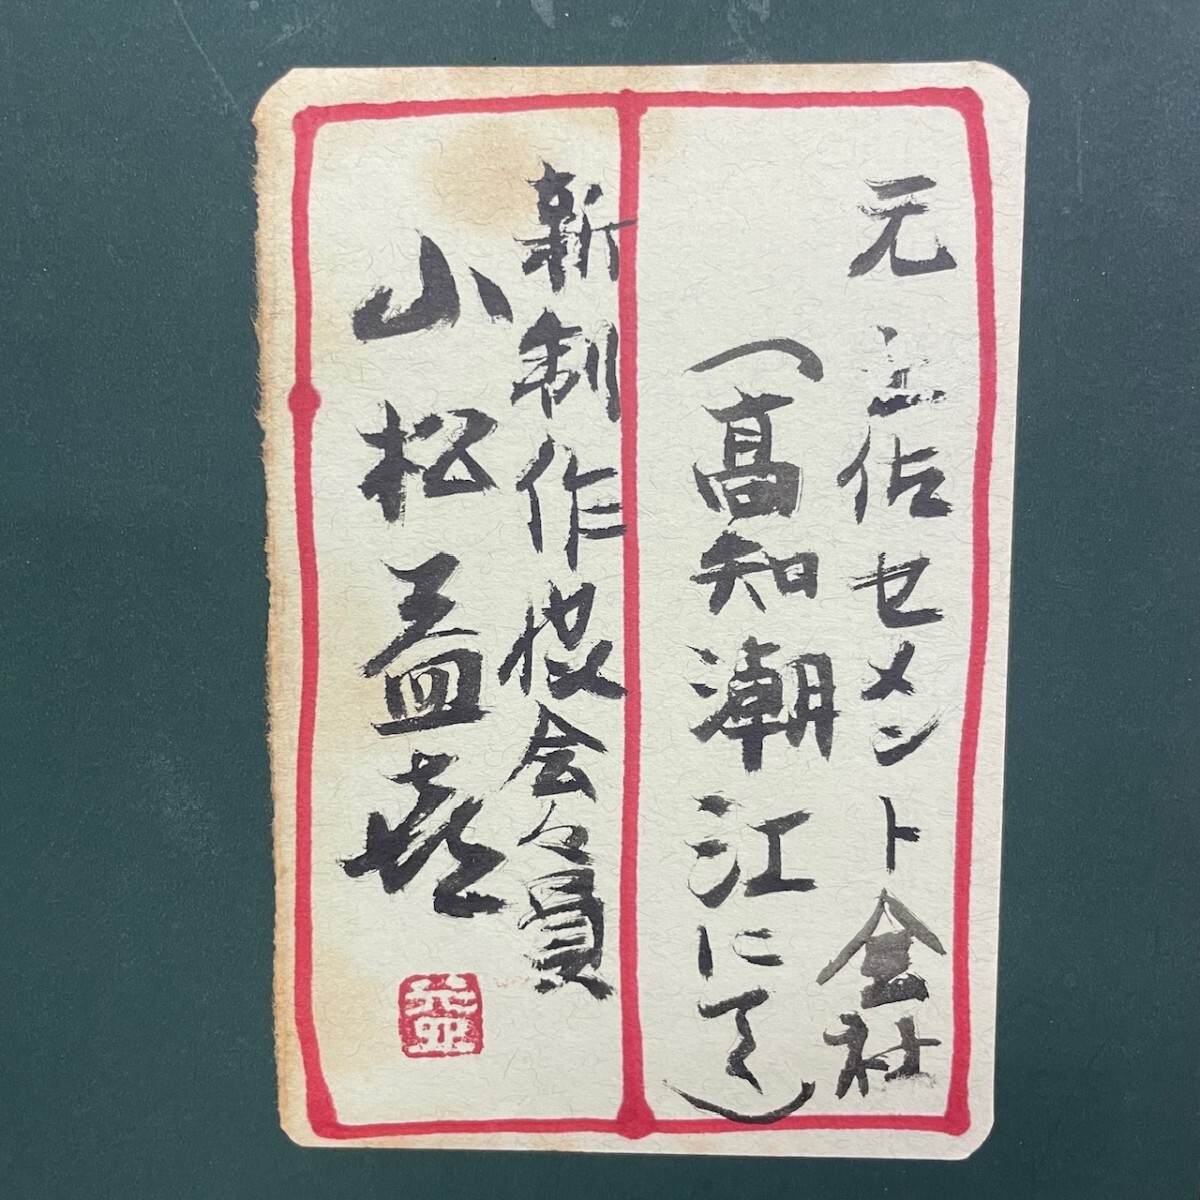 元土佐セメント会社
（高知潮江にて）
新制作協会々員
小松益喜
益